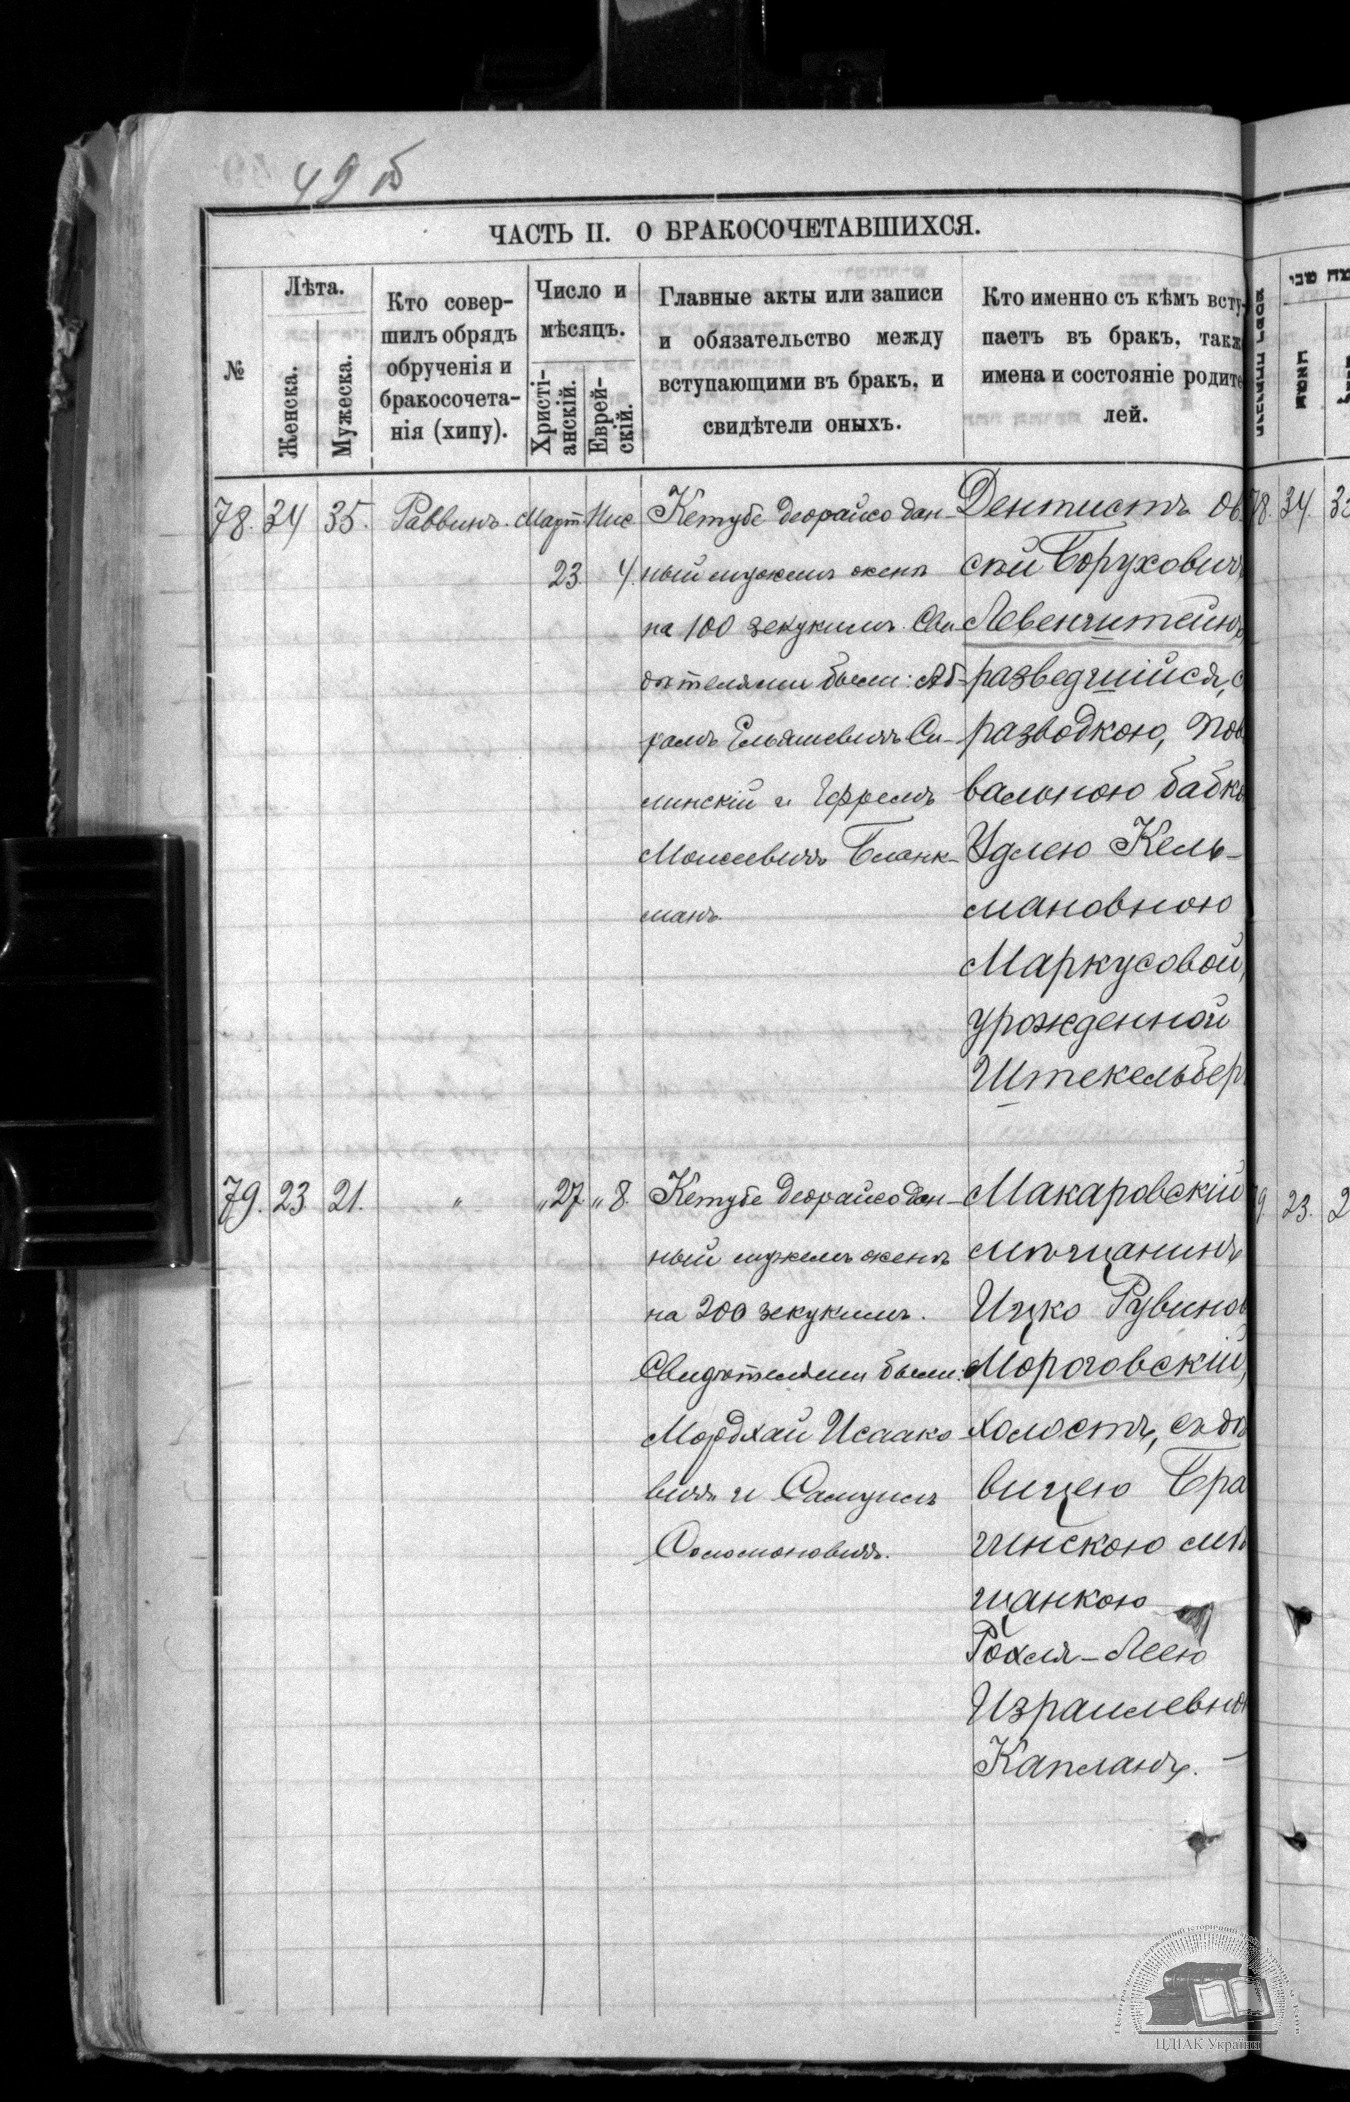 49 б
ЧАСТЬ II. О БРАКОСОЧЕТАВШИХСЯ.
№
Лѣта.
Женска.
Мужеска.
Кто совер-
шилъ обрядъ
обрученія и
бракосочета-
нія (хипу).
Число и
мѣсяцъ.
Христі-
анскій.
Еврей-
скій.
Главные акты или записи
и обязательство между
вступающими въ бракъ, и
свидѣтели оныхъ.
Кто именно съ кѣмъ всту-
паетъ въ бракъ, такж
имена и состояніе родите
лей.
78. 34 35. Раввинъ. Март 23. Нис 4.
Кетубе деорайсо дан-
ный мужемъ женѣ
на 100 зекукимъ. Сви
дѣтелями были: Аб-
рамъ Ельяшевичъ Си-
линскій и Ефремъ
Моисеевичъ Бланк-
манъ.
Дентистъ Ов
сѣй Борухович
Левенштейнъ
разведшійся, с
разводкою, пов
вальною бабко
Удлею Кель-
мановною
Маркусовой,
урожденной
Штекельбер
79. 23 21. " " 27. " 8.
Кетубе деорайсо дан-
ный мужемъ женѣ
на 200 зекукимъ.
Свидѣтелями были:
Мордхай Исаако
вичъ и Самуилъ
Соломоновичъ.
Макаровскій
мѣщанинъ
Ицко Рувинов
Мороговскій,
холостъ, съ дѣ
вицею Бра
гинскою мѣ
щанкою
Рохля-Леею
Израилевно
Капланъ. –
78. 34. 35
23. 2
ЦДІАК України